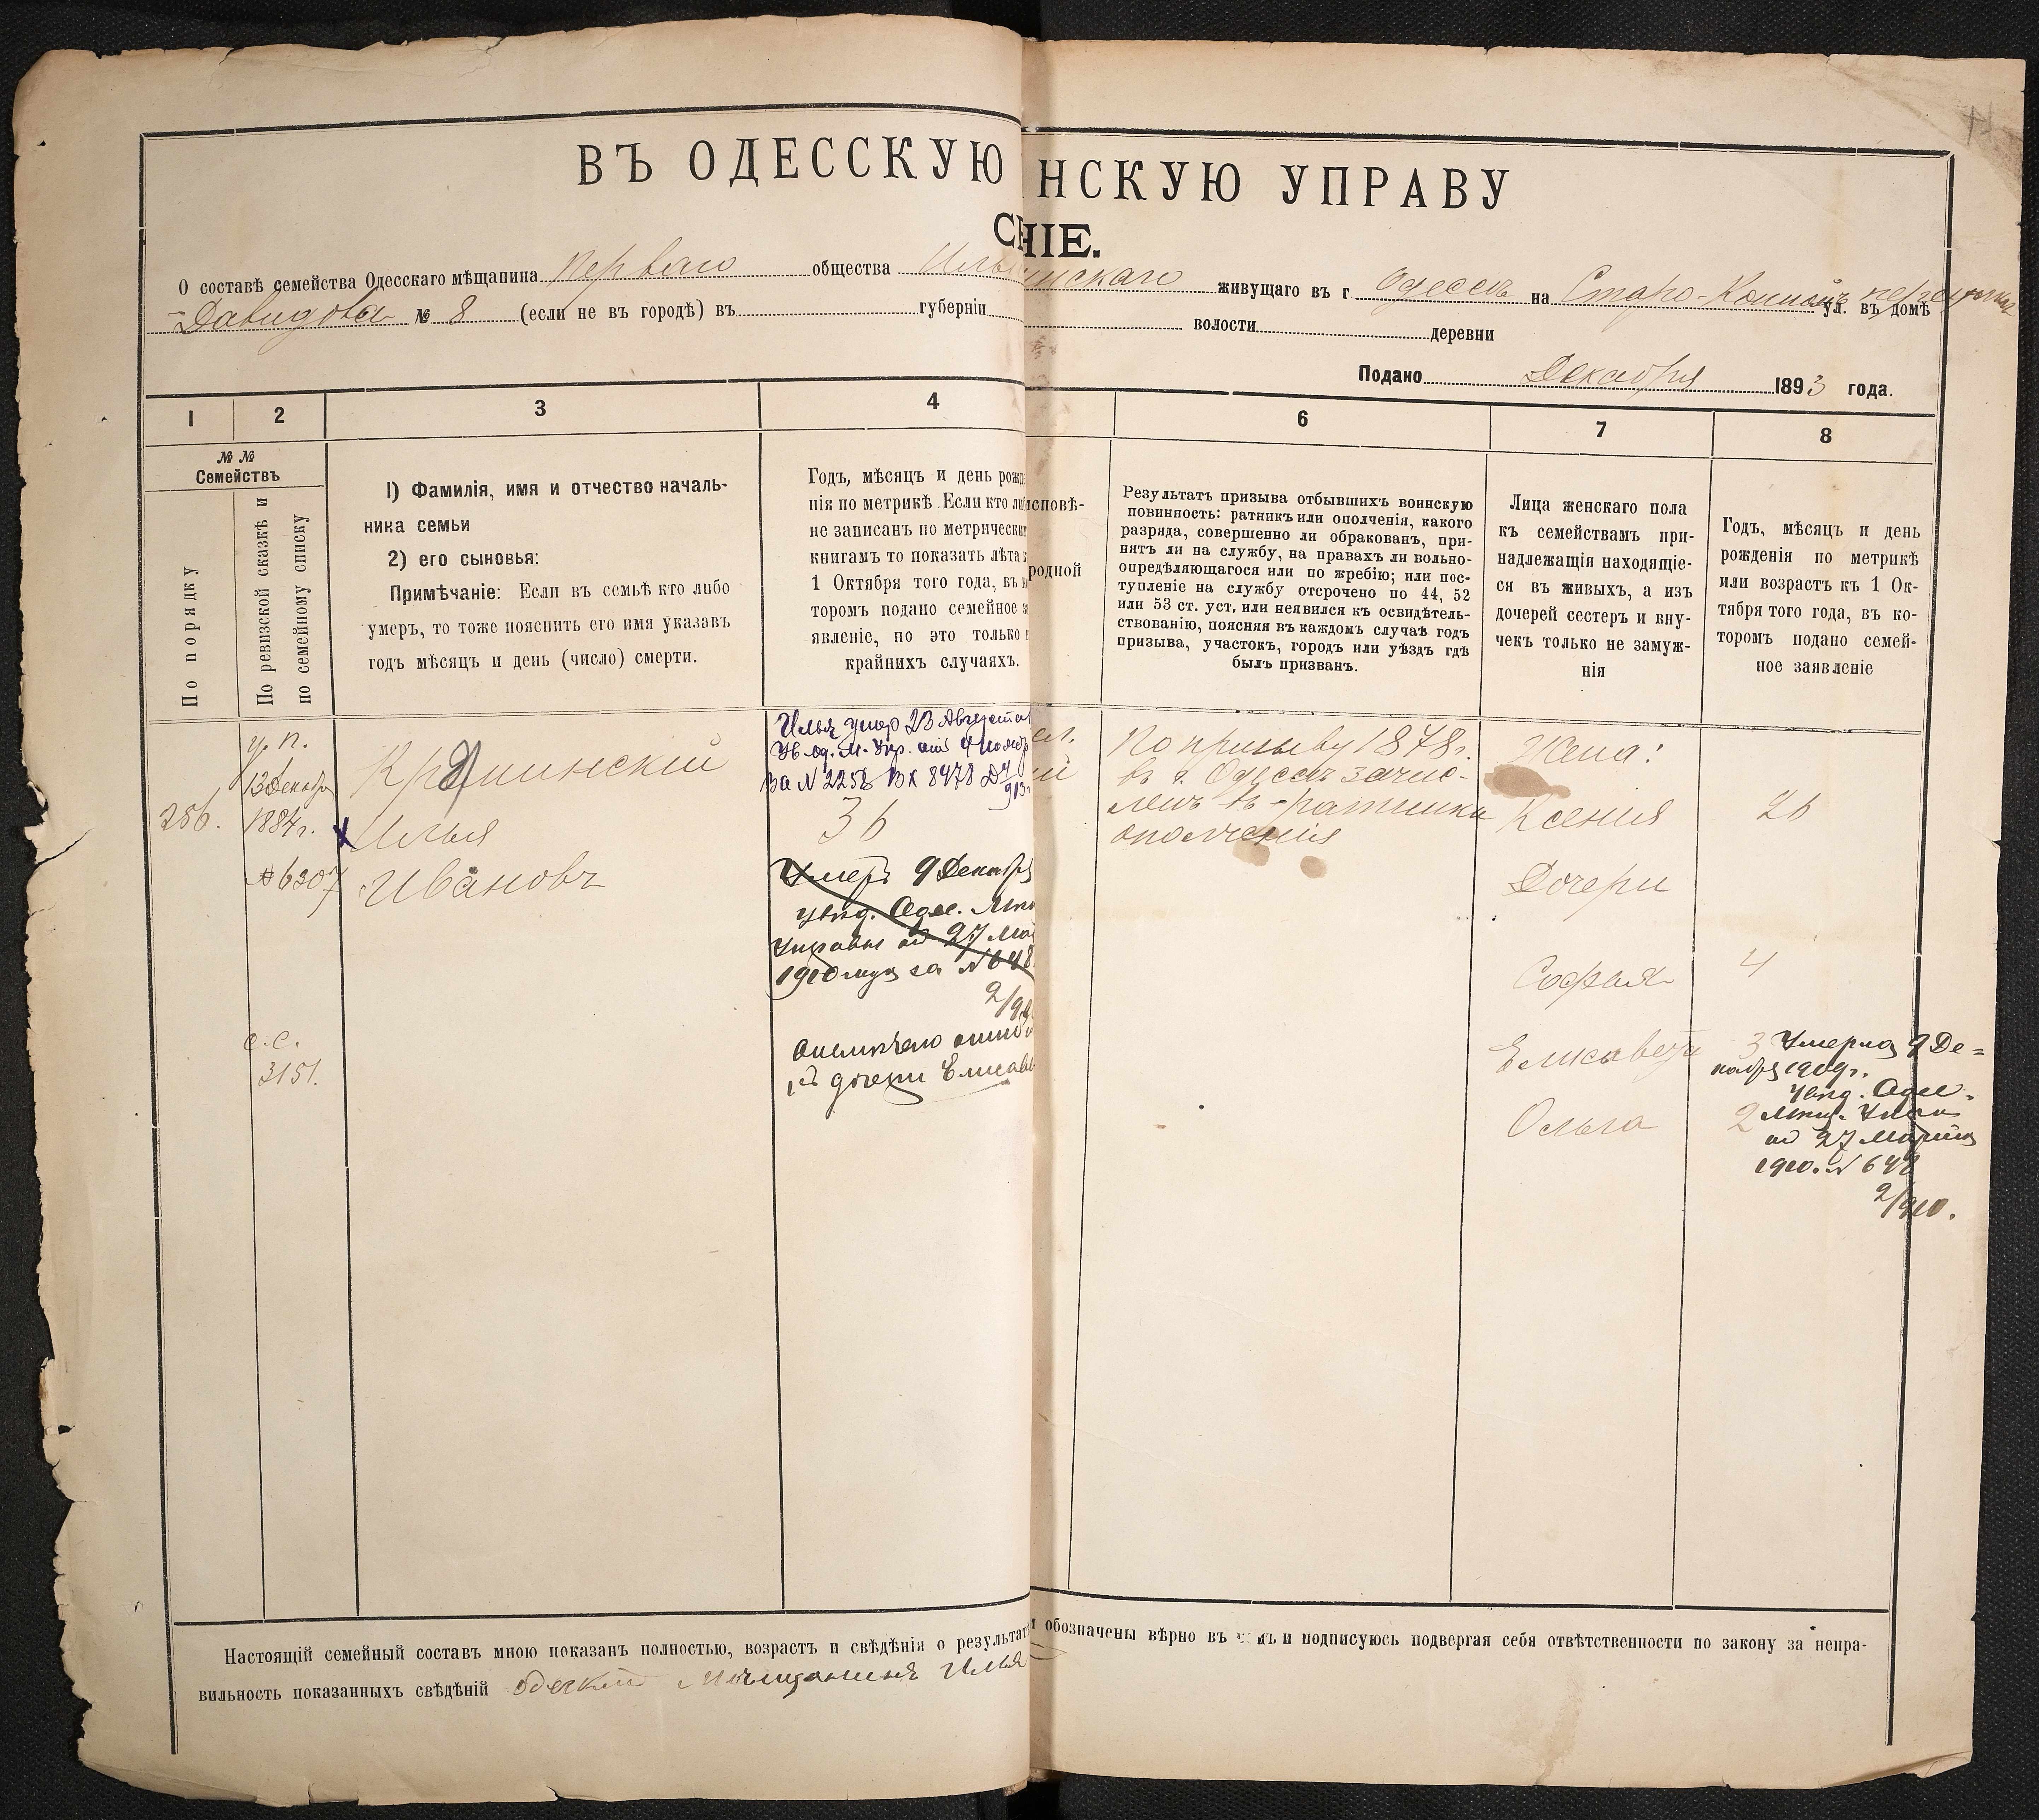 ВЪ ОДЕССКУЮ НСКУЮ УПРАВУ
НІЕ.
О составѣ семейства Одесскаго мѣщанина перваго общества Иль инскаго живущаго въ г Одессѣ на Старо-Конномъ ул. въ домѣ
Давидова № 8 (если не въ городѣ) въ губерніи волости деревни
Подано Декабря 1893 года.
1 2 3 4 6 7 8
№ №
Семействъ
По порядку
По ревизской сказкѣ и
по семейному списку
1) Фамилія, имя и отчество началь-
ника семьи
2) его сыновья:
Примѣчаніе: Если въ семьѣ кто либо
умеръ, то тоже пояснить его имя указавъ
годъ мѣсяцъ и день (число) смерти.
Годъ, мѣсяцъ и день рожд
нія по метрикѣ. Если кто ли
не записанъ по метрически
книгамъ то показать лѣта
1 Октября того года, въ
торомъ подано семейное
явленіе, но это только
крайнихъ случаяхъ.
исповѣ-
родной
Результатъ призыва отбывшихъ воинскую
повинность: ратникъ или ополченія, какого
разряда, совершенно ли обракованъ, при-
нятъ ли на службу, на правахъ ли вольно-
опредѣляющагося или по жребію; или пос-
тупленіе на службу отсрочено по 44, 52
или 53 ст. уст. или неявился къ освидѣтель-
ствованію, поясняя въ каждомъ случаѣ годъ
призыва, участокъ, городъ или уѣздъ гдѣ
былъ призванъ.
Лица женскаго пола
къ семействамъ при-
надлежащія находящіе-
ся въ живыхъ, а изъ
дочерей сестеръ и вну-
чекъ только не замуж-
нія
Годъ, мѣсяцъ и день
рожденія по метрикѣ
или возрастъ къ 1 Ок-
тября того года, въ ко-
торомъ подано семей-
ное заявленіе
256.
у. п.
13 Декабря
1884 г.
№ 6307
с. с.
3151.
Илья
Ивановъ
Илья умер 23 Августа
Ув. од. М. Упр. от 4 Ноябр
За N 2258 ВХ 8478
36
Умеръ 9 Декабр
увед. Одес. Мѣщ
Управы от 27 Ма
1910 года за N 648
ошиб
дочери Елисаве
По призыву 1878 г.
въ г. Одессѣ зачис-
ленъ въ ратники
ополченія
Жена:
Ксенія 26
Дочери
Софья 4
Елисавета 3
Ольга 2
Умерла 9 Де=
кабря 1909 г.
Увед. Одес.
Мѣщ. Упр
от 27 Марта
1910. N 648
2/910.
Настоящій семейный составъ мною показанъ полностью, возрастъ и свѣдѣнія о результат обозначены вѣрно въ и подписуюсь подвергая себя отвѣтственности по закону за непра-
вильность показанныхъ свѣдѣній Одескій Мѣщанинъ Илья